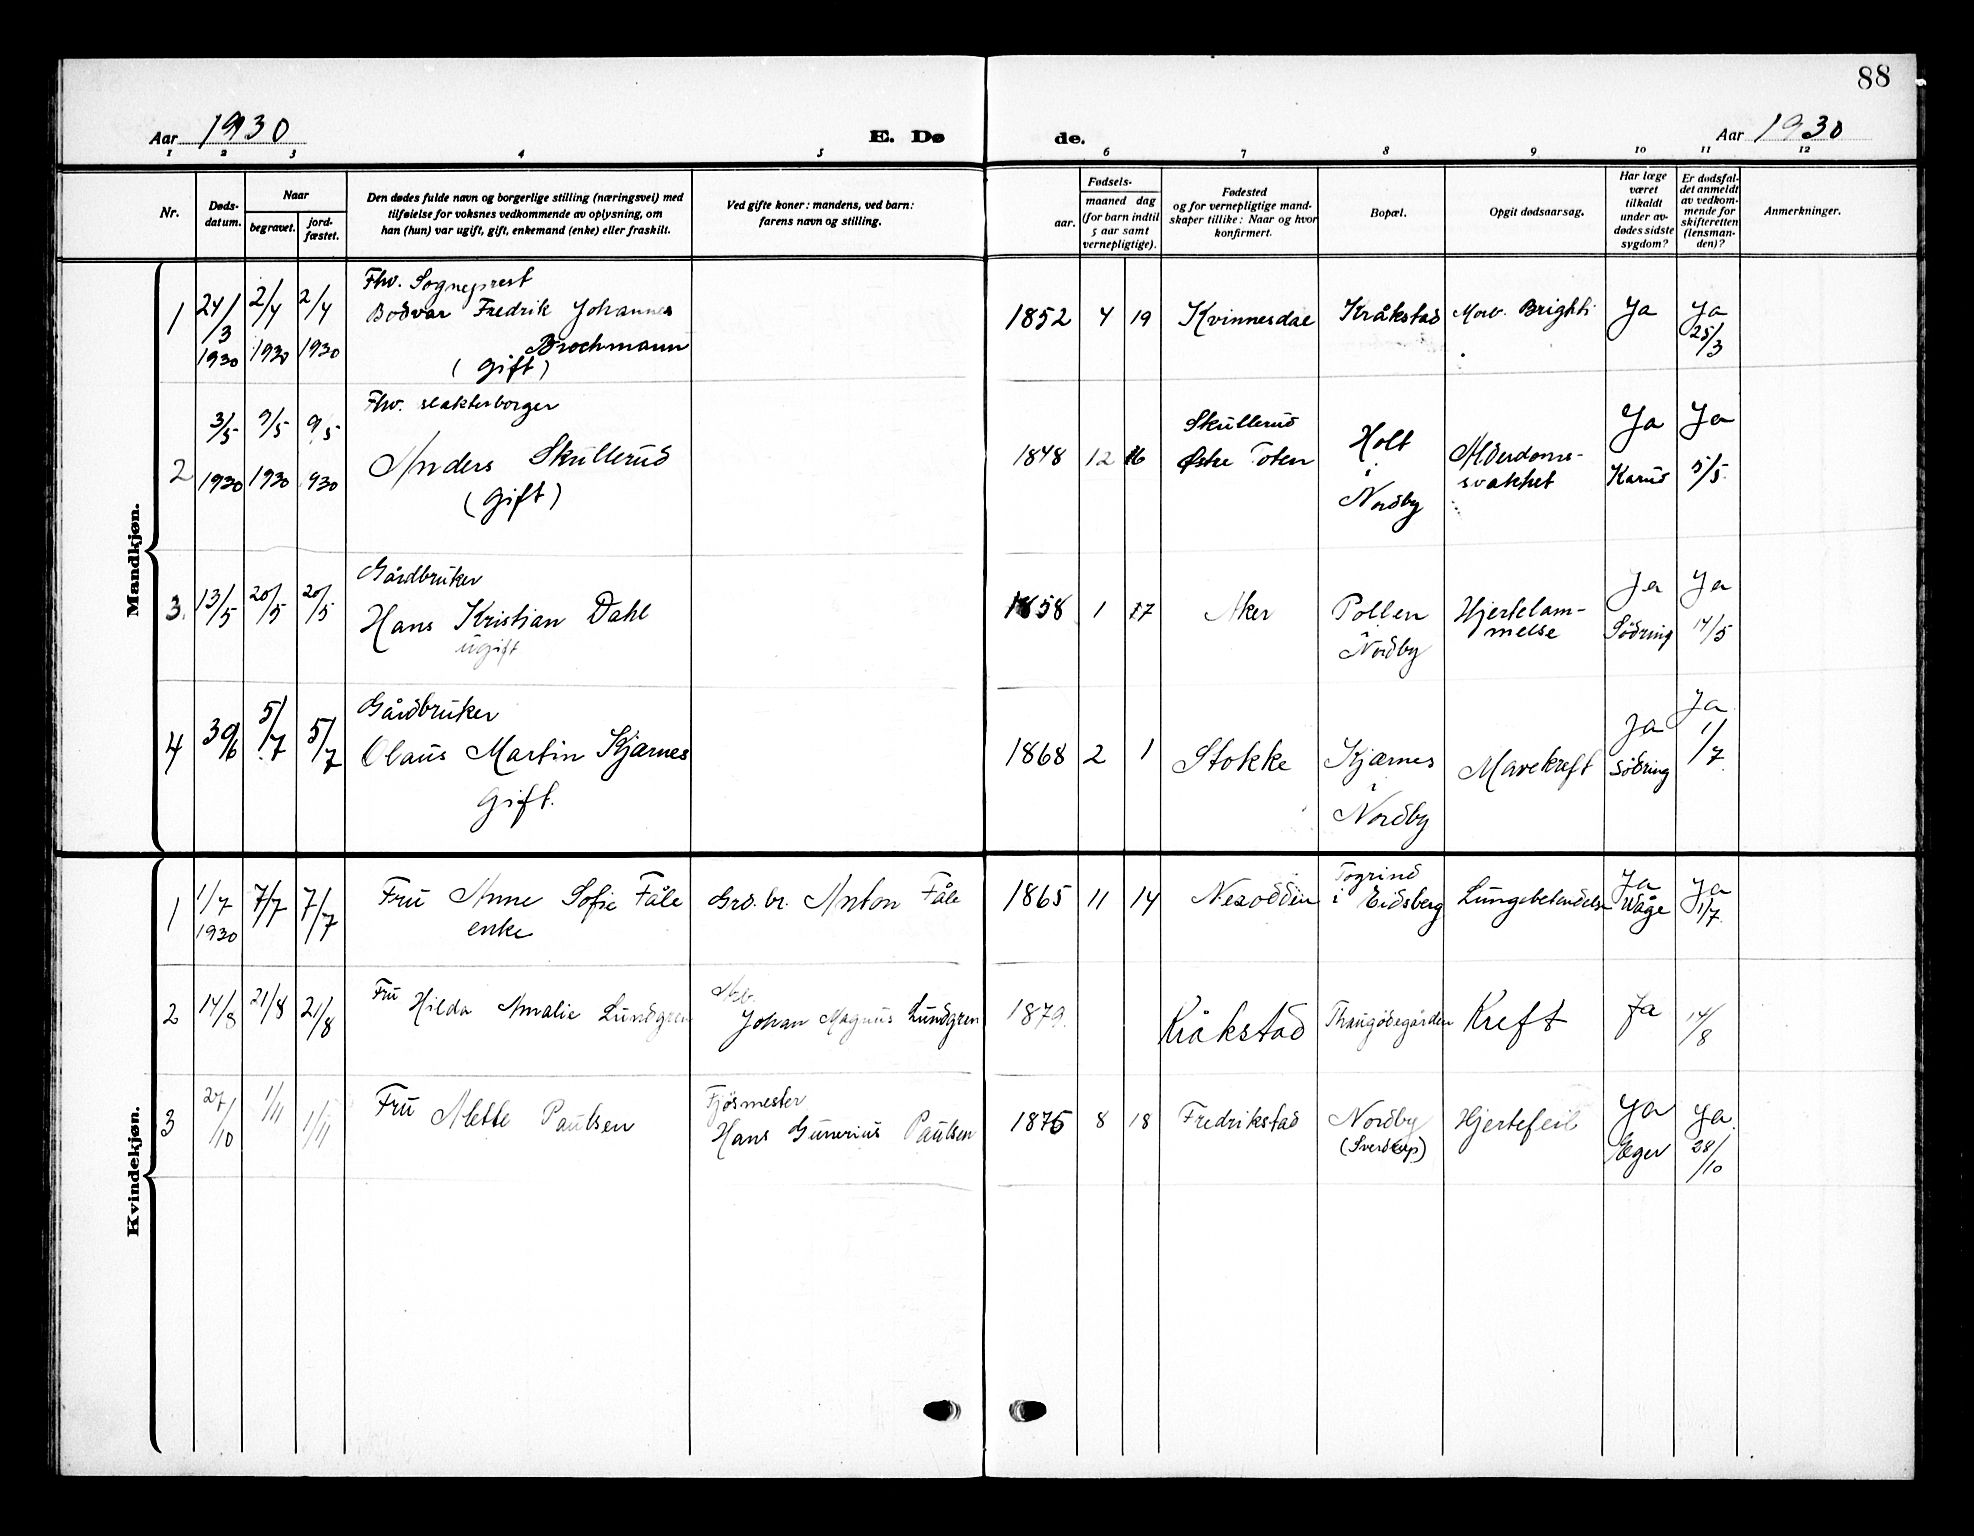 88
Aar 1930
E. Dø
de.
Aar 1930
1 2 3 4 5 6 7 8 9 10 11 12
Nr.
Døds-
datum.
Naar
begravet.
jord-
fæstet.
Den dødes fulde navn og borgerlige stilling (næringsvei) med
tilføielse for voksnes vedkommende av oplysning, om
han (hun) var ugift, gift, enkemand (enke) eller fraskilt.
Ved gifte koner: mandens, ved barn:
farens navn og stilling.
Fødsels-
aar.
maaned dag
(for barn indtil
5 aar samt
vernepligtige).
Fødested
og for vernepligtige mand-
skaper tillike: Naar og hvor
konfirmert.
Bopæl.
Opgit dødsaarsag.
Har læge
været
tilkaldt
under av-
dødes sidste
sygdom?
Er dødsfal-
det anmeldt
av vedkom-
mende for
skifteretten
(lensman-
den)?
Anmerkninger.
Mandkjøn.
1
24/3
1930
2/4
1930
2/4
1930
Fhv. Sogneprest
Bodvar Fredrik Johannes
Brochmann
(gift)
1852 4 19
Kvinnesdal
Kråkstad
Morb. Brighti
Ja
Ja
25/3
2
3/5
1930
9/5
1930
9/5
930
Fhv. slakterborger
Anders Skullerud
(gift)
1848 12 16
Skullerud
Østre Toten
Holt
i
Nordby
Alderdoms-
svakhet
Ja
Karud
Ja
5/5.
3.
13/5
20/5
20/5
Gårdbruker
Hans Kristian Dahl
ugift
1858 1 17
Aker
Pollen
Nordby
Hjertelam-
melse
Ja
Södring
Ja
14/5
4
30/6
5/7
5/7
Gårdbruker
Olaus Martin Kjærnes
gift.
1868 2 1
Stokke
Kjærnes
i
Nordby
Mavekreft
Ja
Södring
Ja
1/7
Kvindekjøn.
1
1/7
1930
7/7
7/7
Fru Anne Sofie Fåle
enke
Grd. br. Anton Fåle
1865 11 14
Nesodden
Togrind
i Eidsberg
Lungebetendelse
Ja
Wåge
Ja
1/7.
2
14/8
21/8
21/8
Fru Hilda Amalie Lundgren
Arb.
Johan Magnus Lundgren
1879.
Kråkstad
Thaugödegården
Kreft
Ja
14/8
3
27/10
1/11
1/11
Fru Mette Paulsen
Fjösmester
Hans Gunerius Paulsen
1876 8 18
Fredrikstad
Nordby
(Sverstrup)
Hjertefeil
Ja
Eger
Ja.
28/10